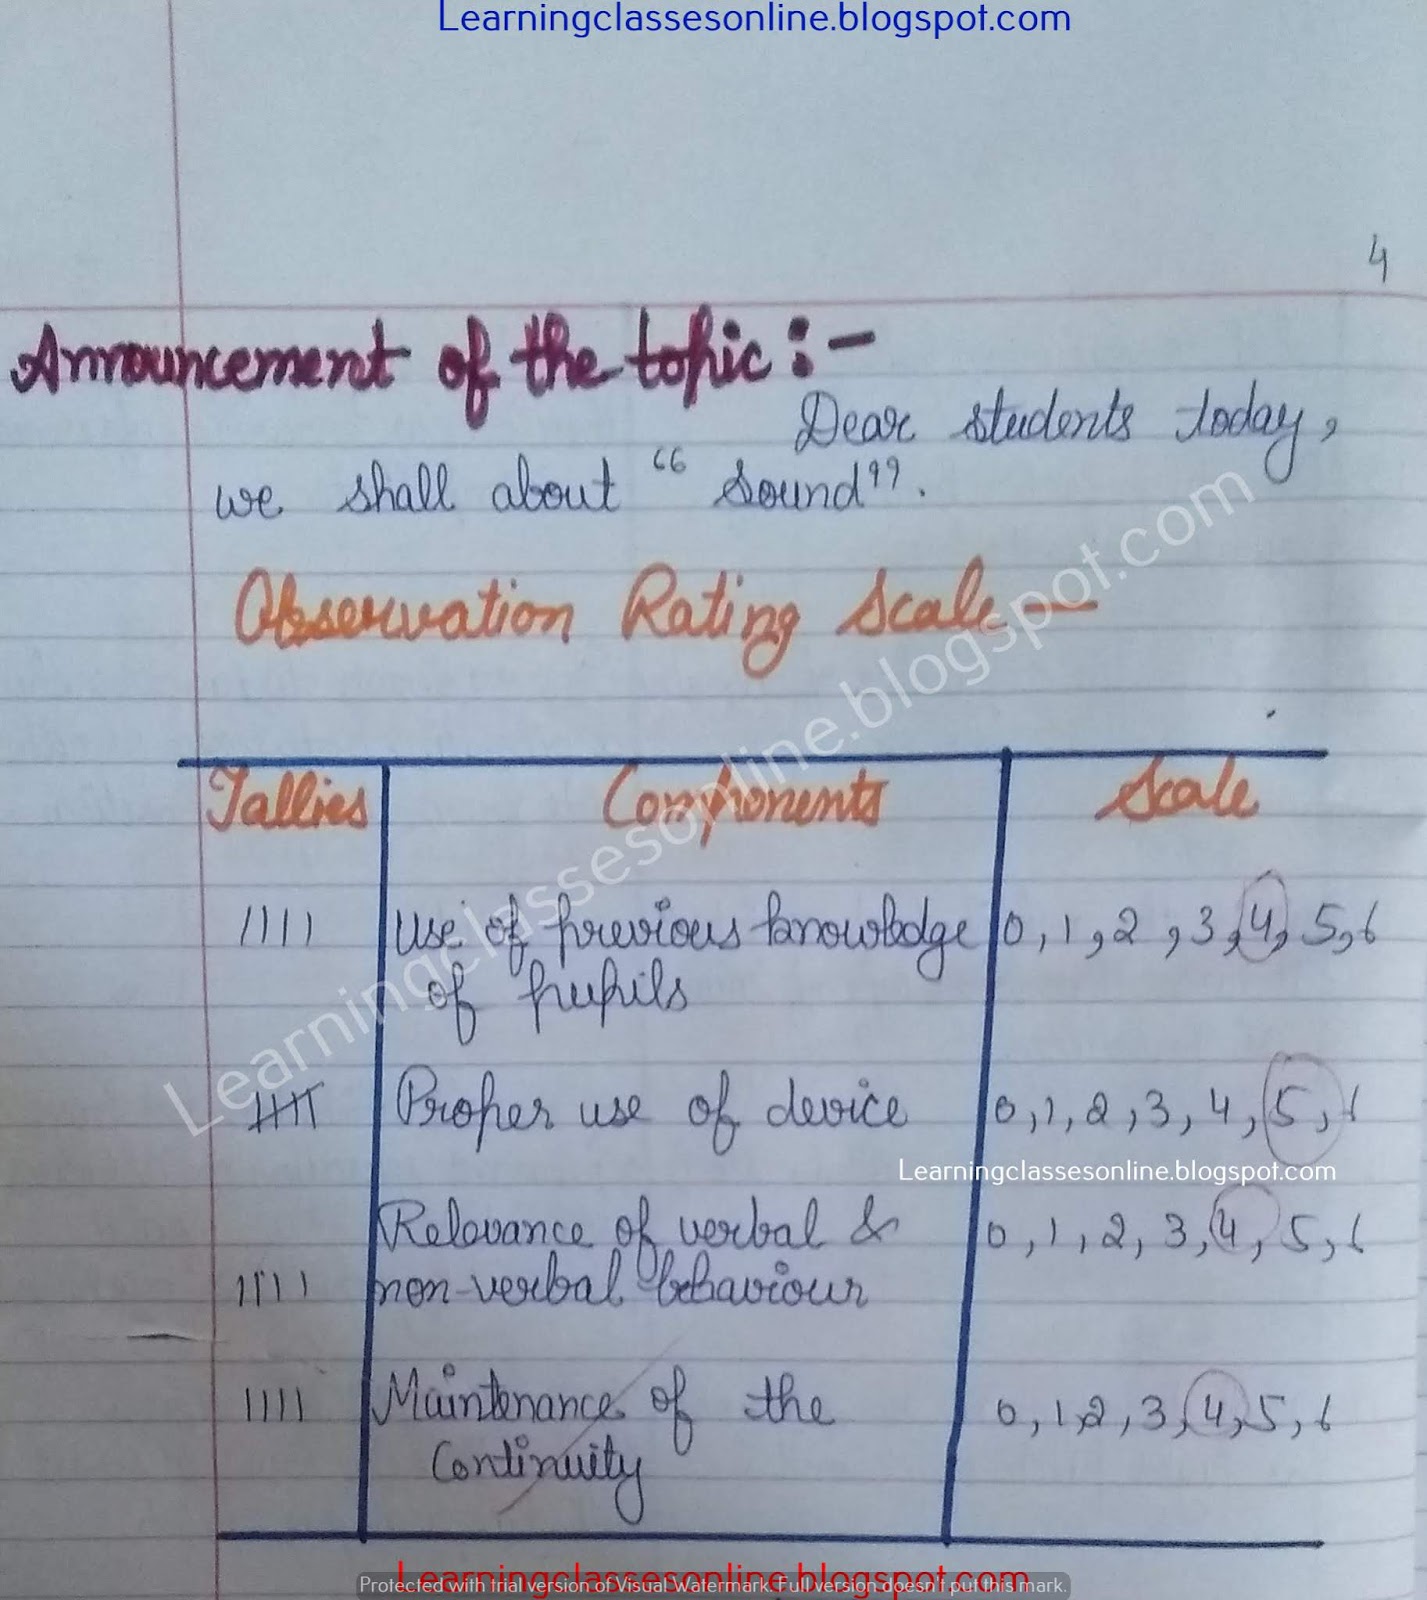 Learningclassesonline.blogspot.com
4
Announcement of the topic :-
Dear students today,
we shall about "Sound".
Observation Rating Scale -
Tallies Components Scale
|||| Use of previous knowledge 0, 1, 2, 3, 4, 5, 6
of pupils
Proper use of device 0, 1, 2, 3, 4, 5, 6
Relevance of verbal & 0, 1, 2, 3, 4, 5, 6
|||| non-verbal behaviour
|||| Maintenance of the 0, 1, 2, 3, 4, 5, 6
Continuity
Learningclassesonline.blogspot.com
Learningclassesonline.blogspot.com
Learningclassesonline.blogspot.com
Protected with trial version of Visual Watermark. Full version doesn't put this mark.